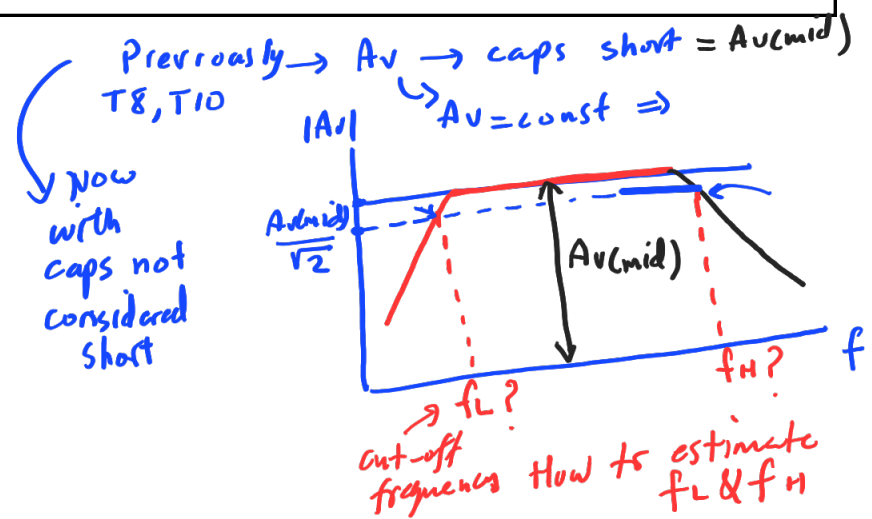 Previously → Av → caps short = Av(mid)
T8, T10
↳ Av = const ⇒
|Av|
Now
with
caps not
considered
short
Av(mid)
√2
Av(mid)
f
fL?
fH?
cut-off
frequency
How to estimate
fL & fH